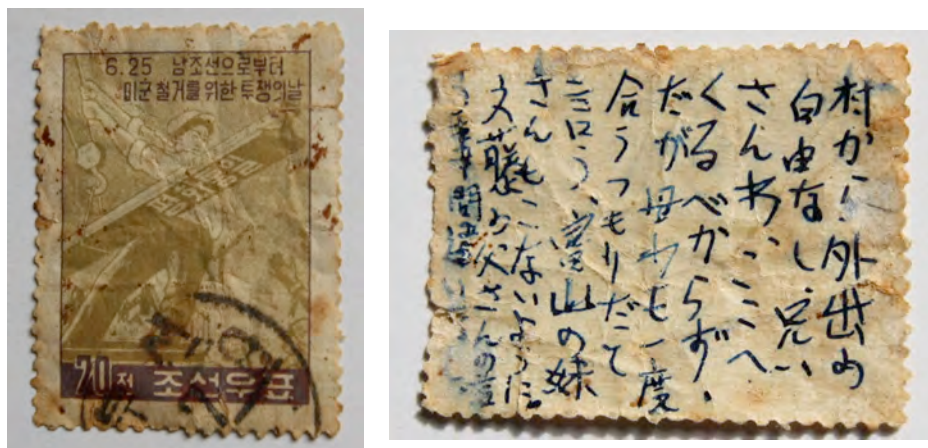 6.25 남조선으로부터
미군 철거를 위한 투쟁의 날
전 조선우표
村から外出の
自由なし、兄い
さんわ、ここへ
くるべからず、
だが母わも一度
合うつもりだて
言う、富山の妹
さんもこないように
藤の父さんの言
事間違